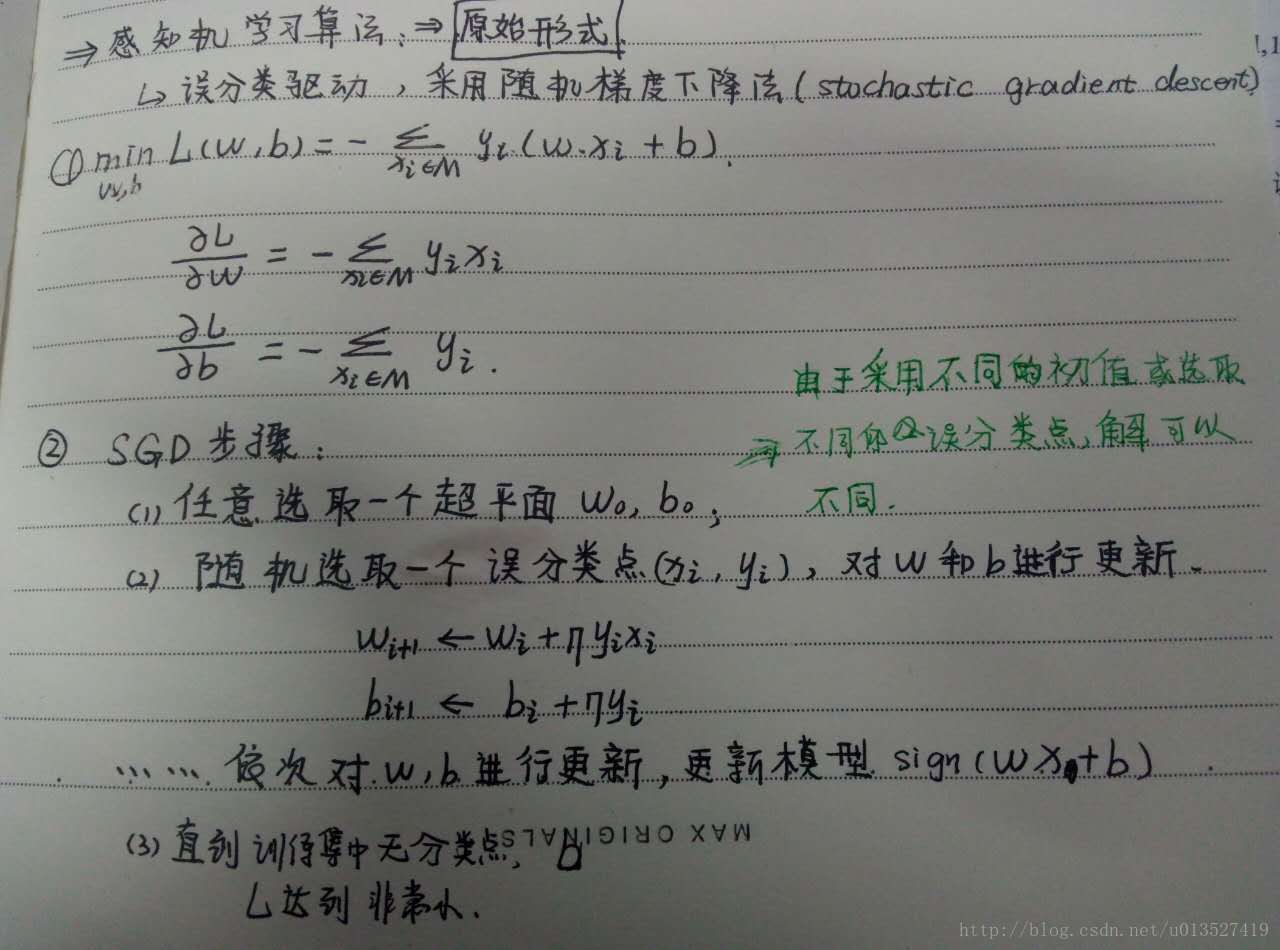 ⇒ 感知机学习算法：⇒ 原始形式
↳ 误分类驱动，采用随机梯度下降法(stochastic gradient descent)
① min L(w,b) = - ∑ yi(w·xi + b).
w,b xi∈M
∂L/∂w = - ∑ yi xi
xi∈M
∂L/∂b = - ∑ yi.
xi∈M
由于采用不同的初值或选取
⇒ 不同的误分类点,解可以
不同.
② SGD 步骤：
(1) 任意选取一个超平面 w0, b0;
(2) 随机选取一个误分类点(xi, yi)，对w和b进行更新.
wi+1 ← wi + ηyixi
bi+1 ← bi + ηyi
…… 依次对w,b进行更新，更新模型 sign(wx+b)
(3) 直到训练集中无分类点,
L达到非常小.
MAX ORIGINALS
http://blog.csdn.net/u013527419